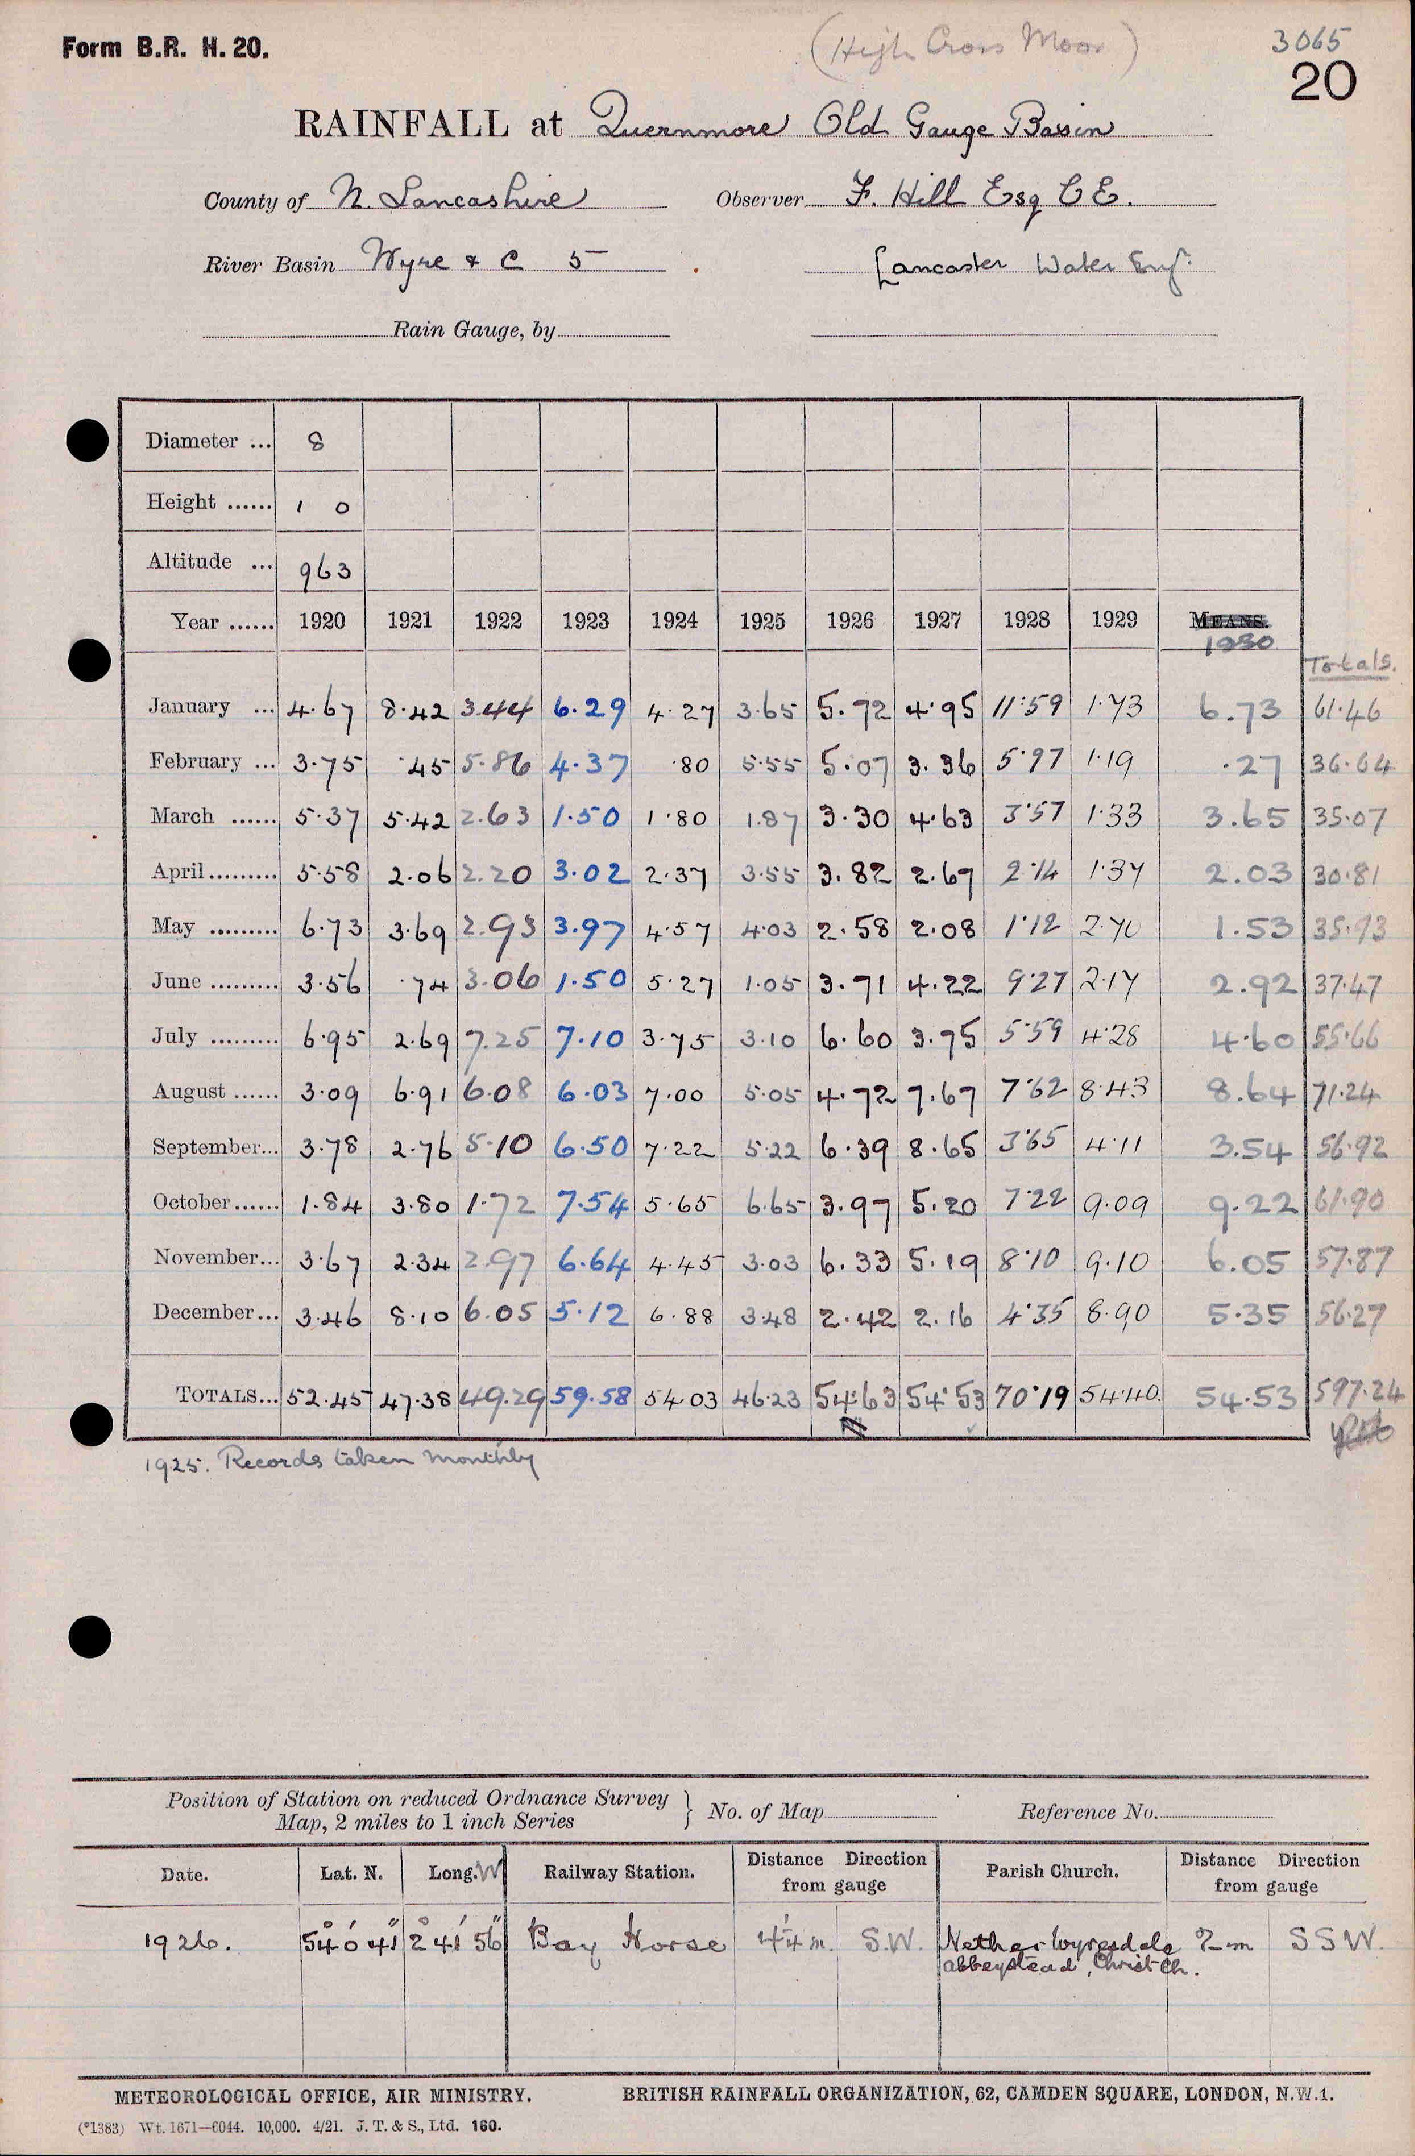 Form B.R. H. 20.
(High Cross Moor)
3065
20
RAINFALL at Quernmore Old Gauge Bassin
County of N. Lancashire Observer F. Hill Esq C E.
River Basin Wyre & C 5 Lancaster Water Eng.
Rain Gauge, by
Diameter ... 8
Height ...... 1 0
Altitude ... 963
Year ...... 1920 1921 1922 1923 1924 1925 1926 1927 1928 1929 MEANS.
1930
Totals.
January ... 4.67 8.42 3.44 6.29 4.27 3.65 5.72 4.95 11.59 1.73 6.73 61.46
February ... 3.75 .45 5.86 4.37 .80 5.55 5.07 3.36 5.97 1.19 .27 36.64
March ...... 5.37 5.42 2.63 1.50 1.80 1.87 3.30 4.63 3.57 1.33 3.65 35.07
April ......... 5.58 2.06 2.20 3.02 2.37 3.55 3.82 2.67 2.14 1.37 2.03 30.81
May ......... 6.73 3.69 2.93 3.97 4.57 4.03 2.58 2.08 1.12 2.70 1.53 35.93
June ......... 3.56 .74 3.06 1.50 5.27 1.05 3.71 4.22 9.27 2.17 2.92 37.47
July ......... 6.95 2.69 7.25 7.10 3.75 3.10 6.60 3.75 5.59 4.28 4.60 55.66
August ...... 3.09 6.91 6.08 6.03 7.00 5.05 4.72 7.67 7.62 8.43 8.64 71.24
September... 3.78 2.76 5.10 6.50 7.22 5.22 6.39 8.65 3.65 4.11 3.54 56.92
October...... 1.84 3.80 1.72 7.54 5.65 6.65 3.97 5.20 7.22 9.09 9.22 61.90
November... 3.67 2.34 2.97 6.64 4.45 3.03 6.33 5.19 8.10 9.10 6.05 57.87
December... 3.46 8.10 6.05 5.12 6.88 3.48 2.42 2.16 4.35 8.90 5.35 56.27
TOTALS... 52.45 47.38 49.29 59.58 54.03 46.23 54.63 54.53 70.19 54.40 54.53 597.24
1925. Records taken monthly
Position of Station on reduced Ordnance Survey
Map, 2 miles to 1 inch Series } No. of Map Reference No.
Date. Lat. N. Long. W Railway Station. Distance Direction from gauge Parish Church. Distance Direction from gauge
1926. 54° 0' 41" 2° 41' 56" Bay Horse 4¼ m. S.W. Nether Wyresdale 2 m S S W.
Abbeystead, Christ Ch.
METEOROLOGICAL OFFICE, AIR MINISTRY. BRITISH RAINFALL ORGANIZATION, 62, CAMDEN SQUARE, LONDON, N.W.1.
(*1383) Wt. 1671—6044. 10,000. 4/21. J. T. & S., Ltd. 160.